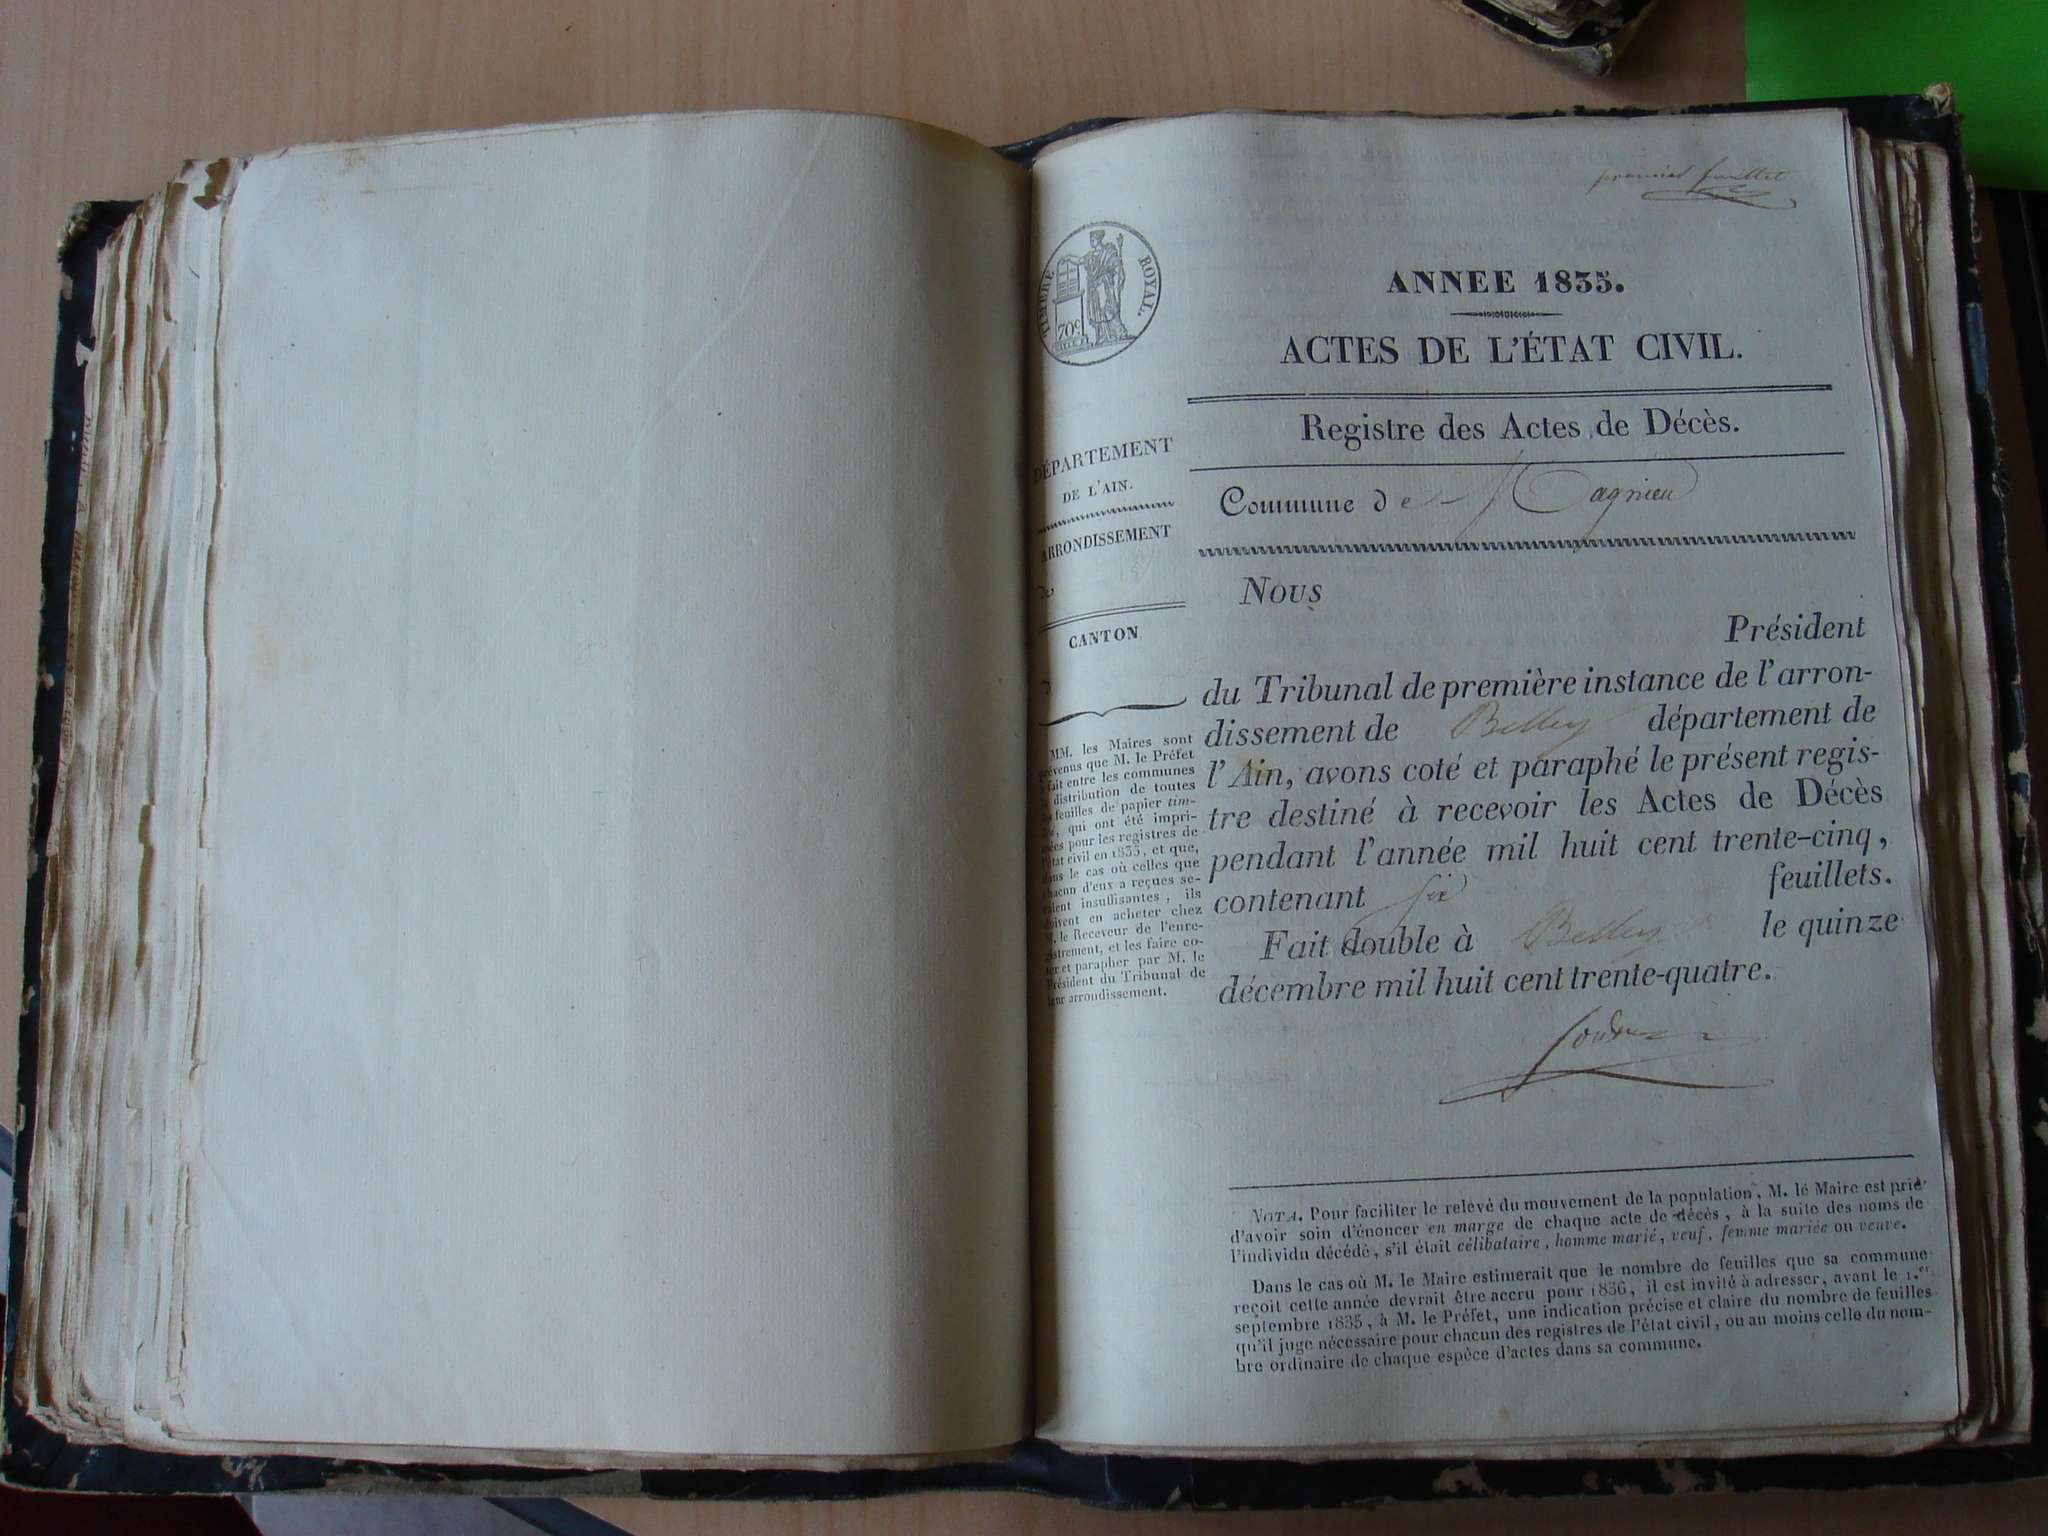 premier feuillet
TIMBRE ROYAL.
70c
ANNEE 1835.
ACTES DE L'ÉTAT CIVIL.
Registre des Actes de Décès.
Commune de Magnieu
DÉPARTEMENT
DE L'AIN.
ARRONDISSEMENT
de
CANTON
d
MM. les Maires sont
prévenus que M. le Préfet
a fait entre les communes
la distribution de toutes
les feuilles de papier tim-
bré, qui ont été impri-
mées pour les registres de
l'état civil en 1835, et que,
dans le cas où celles que
chacun d'eux a reçues se-
raient insuffisantes, ils
doivent en acheter chez
M. le Receveur de l'enre-
gistrement, et les faire co-
ter et parapher par M. le
Président du Tribunal de
leur arrondissement.
Nous
Président
du Tribunal de première instance de l'arron-
dissement de Belley département de
l'Ain, avons coté et paraphé le présent regis-
tre destiné à recevoir les Actes de Décès
pendant l'année mil huit cent trente-cinq,
contenant six feuillets.
Fait double à Belley le quinze
décembre mil huit cent trente-quatre.
NOTA. Pour faciliter le relevé du mouvement de la population, M. le Maire est prié
d'avoir soin d'énoncer en marge de chaque acte de décès, à la suite des noms de
l'individu décédé, s'il était célibataire, homme marié, veuf, femme mariée ou veuve.
Dans le cas où M. le Maire estimerait que le nombre de feuilles que sa commune
reçoit cette année devrait être accru pour 1836, il est invité à adresser, avant le 1.er
septembre 1835, à M. le Préfet, une indication précise et claire du nombre de feuilles
qu'il juge nécessaire pour chacun des registres de l'état civil, ou au moins celle du nom-
bre ordinaire de chaque espèce d'actes dans sa commune.